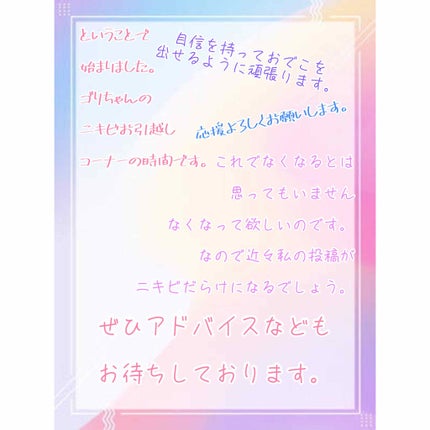 ということで
始まりました。
ゴリちゃんの
ニキビお引越し
コーナーの時間です。
自信を持っておでこを
出せるように頑張ります。
応援よろしくお願いします。
これでなくなるとは
思ってもいません
なくなって欲しいのです。
なので近々私の投稿が
ニキビだらけになるでしょう。
ぜひアドバイスなども
お待ちしております。